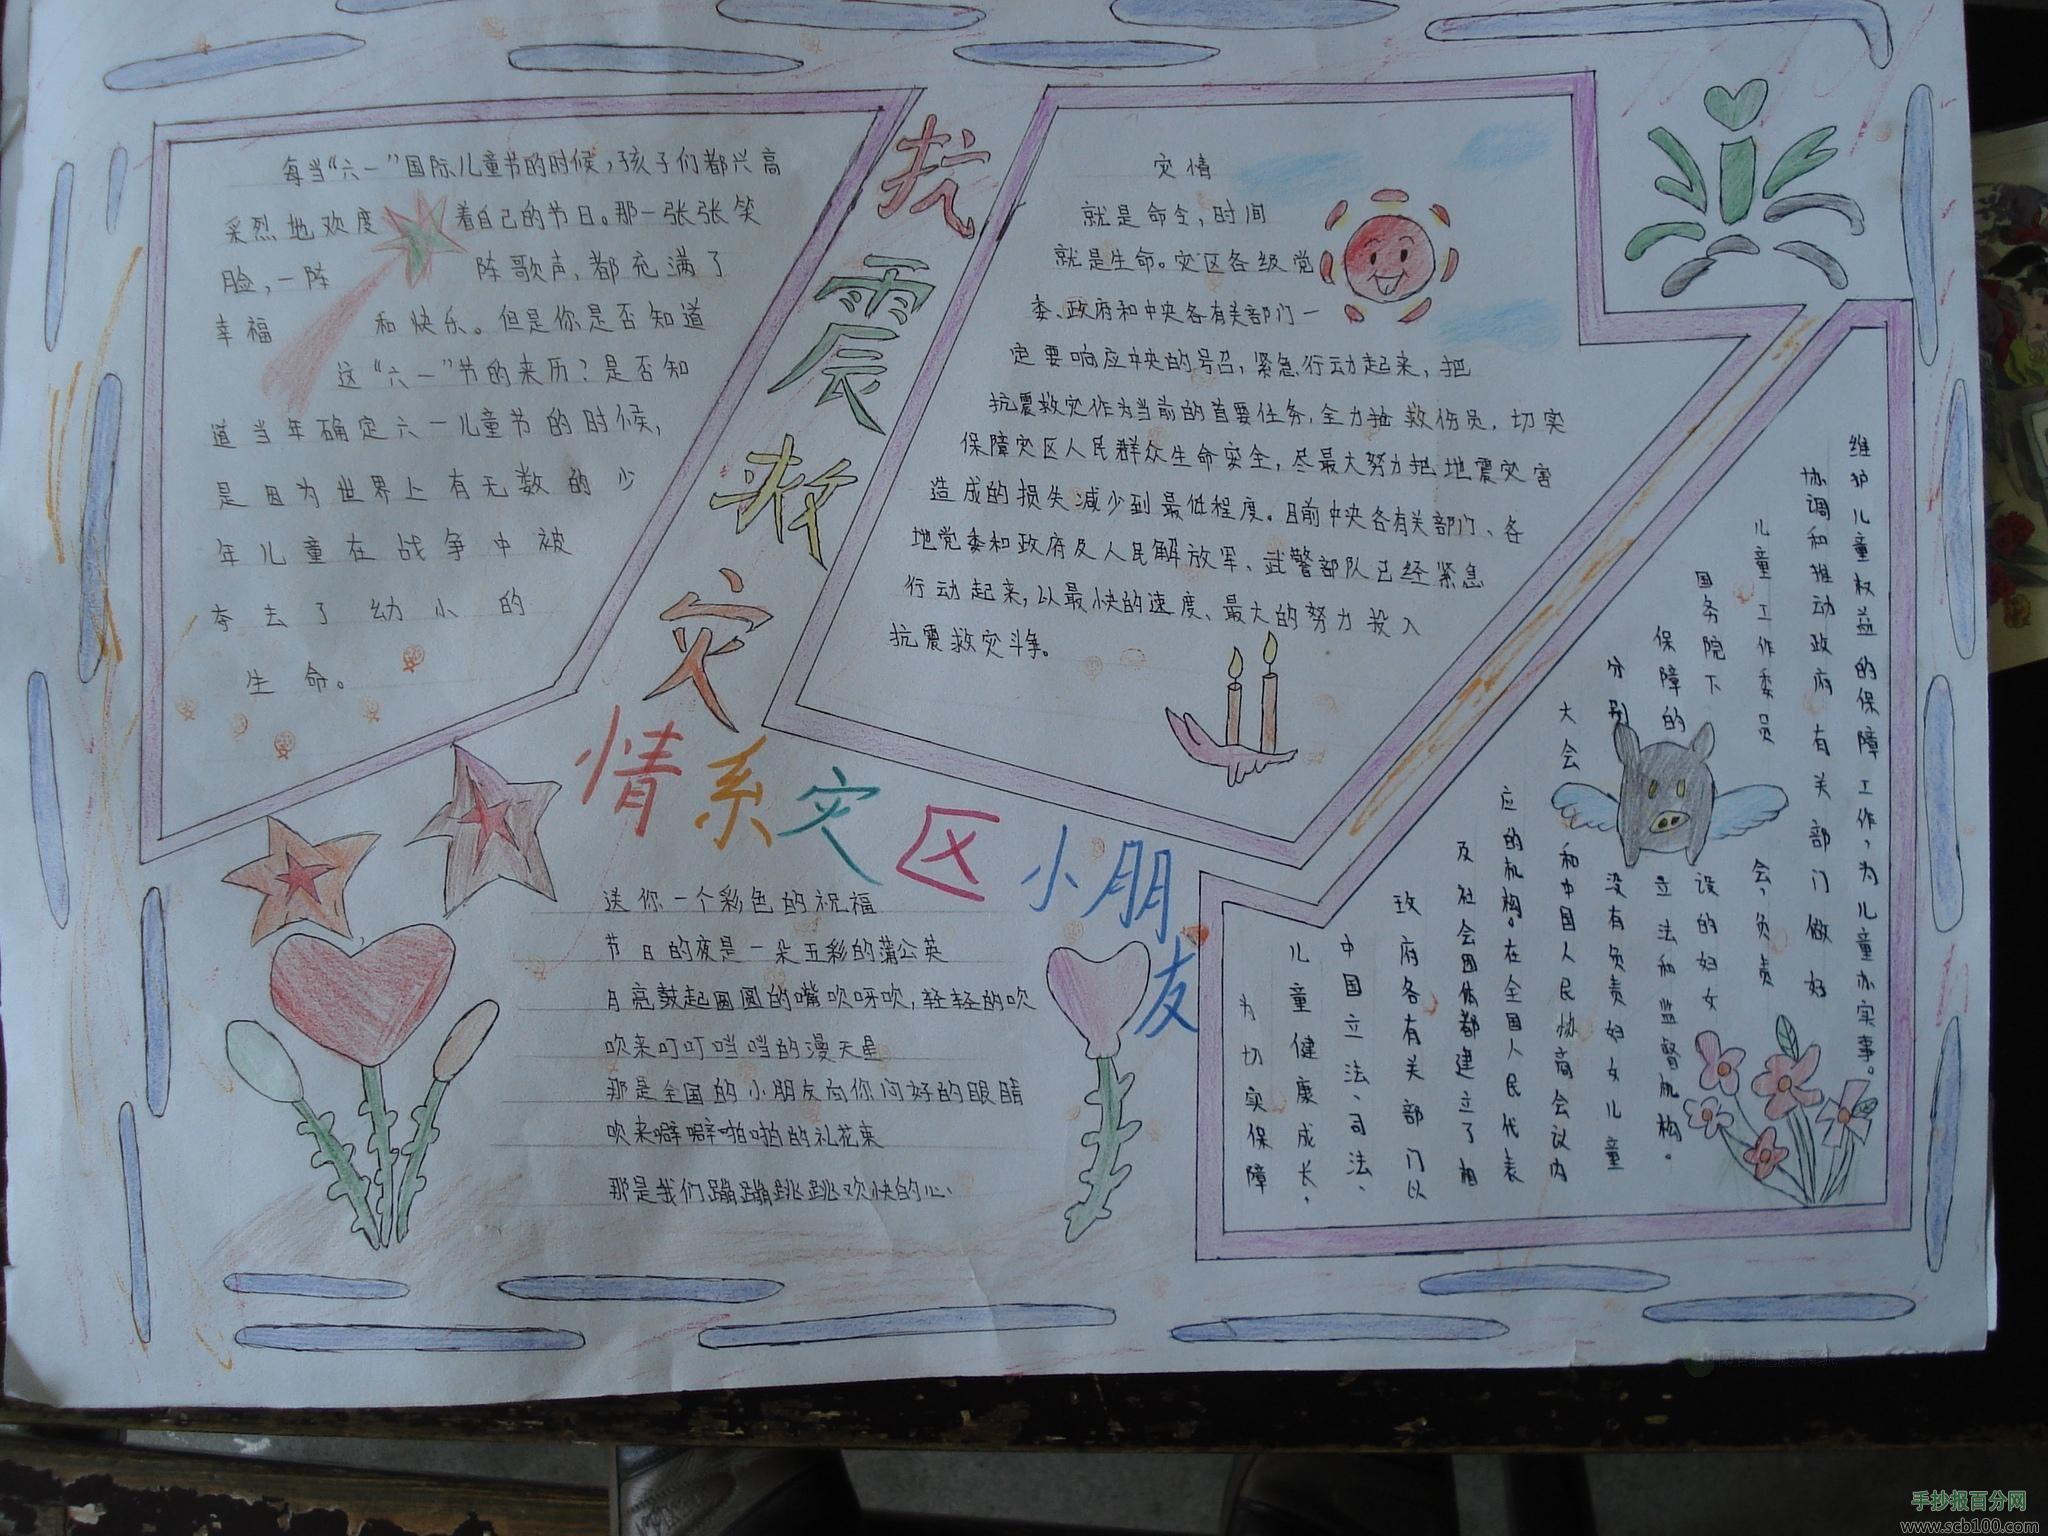 每当“六一”国际儿童节的时候,孩子们都兴高
采烈地欢度着自己的节日。那一张张笑
脸,一阵阵歌声,都充满了
幸福和快乐。但是你是否知道
这“六一”节的来历?是否知
道当年确定六一儿童节的时候,
是因为世界上有无数的少
年儿童在战争中被
夺去了幼小的
生命。
抗震救灾
情系灾区小朋友
灾情
就是命令,时间
就是生命。灾区各级党
委、政府和中央各有关部门一
定要响应中央的号召,紧急行动起来,把
抗震救灾作为当前的首要任务,全力抢救伤员,切实
保障灾区人民群众生命安全,尽最大努力把地震灾害
造成的损失减少到最低程度。目前中央各有关部门、各
地党委和政府及人民解放军、武警部队已经紧急
行动起来,以最快的速度、最大的努力投入
抗震救灾斗争。
送你一个彩色的祝福
节日的夜是一朵五彩的蒲公英
月亮鼓起圆圆的嘴吹呀吹,轻轻的吹
吹来叮叮当当的漫天星
那是全国的小朋友向你问好的眼睛
吹来噼噼啪啪的礼花束
那是我们蹦蹦跳跳欢快的心
为切实保障
儿童健康成长,
中国立法、司法、
政府各有关部门以
及社会团体都建立了相
应的机构。在全国人民代表
大会和中国人民协商会议内
分别没有负责妇女儿童
保障的立法和监督机构。
国务院下设的妇女
儿童工作委员会,负责
协调和推动政府有关部门做好
维护儿童权益的保障工作,为儿童办实事。
手抄报百分网
www.scb100.com